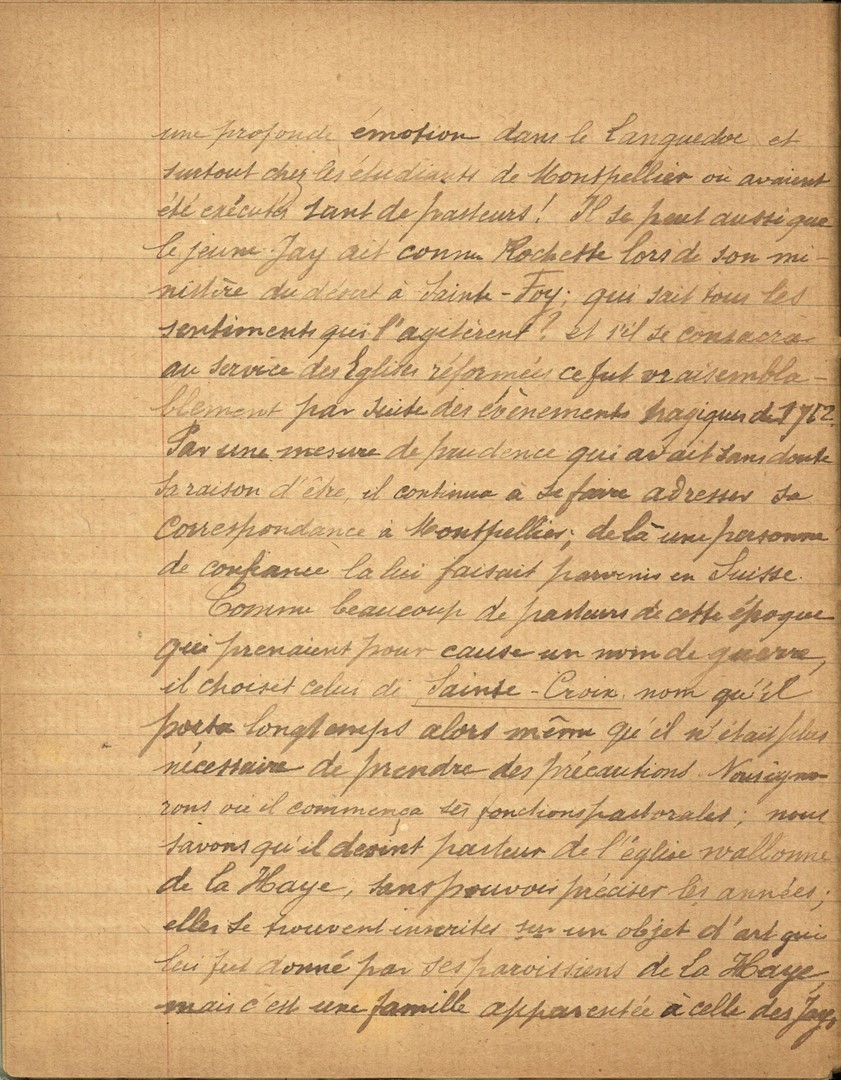 une profonde émotion dans le Languedoc et
surtout chez les étudiants de Montpellier où avaient
été exécutés tant de pasteurs ! Il se peut aussi que
le jeune Jay ait connu Rochette lors de son mi-
nistère du désert à Sainte-Foy ; qui sait tous les
sentiments qui l'agitèrent ? et s'il se consacra
au service des Eglises réformées ce fut vraisembla-
blement par suite des évènements tragiques de 1762.
Par une mesure de prudence qui avait sans doute
sa raison d'être, il continua à se faire adresser sa
correspondance à Montpellier ; de là une personne
de confiance la lui faisait parvenir en Suisse.
Comme beaucoup de pasteurs de cette époque
qui prenaient pour cause un nom de guerre,
il choisit celui de Sainte-Croix, nom qu'il
porta longtemps alors même qu'il n'était plus
nécessaire de prendre des précautions. Nous igno-
rons où il commença ses fonctions pastorales ; nous
savons qu'il devint pasteur de l'église wallonne
de la Haye, sans pouvoir préciser les années ;
elles se trouvent inscrites sur un objet d'art qui
lui fut donné par ses paroissiens de La Haye,
mais c'est une famille apparentée à celle des Jay,